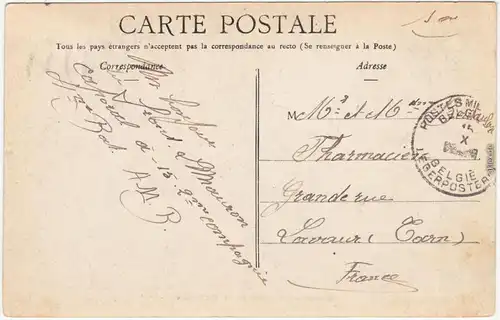 CARTE POSTALE
Tous les pays étrangers n'acceptent pas la correspondance au recto (Se renseigner à la Poste)
Correspondance
Adresse
Un bonjour
Mauron
Caporal a 13. 2me Compagnie
Bat. A.M.R.
M. et M
Pharmacien
Grande rue
Lavaur (Tarn)
France
POSTES MIL
BELG
X
BELGIE
LEGERPOSTERIJ